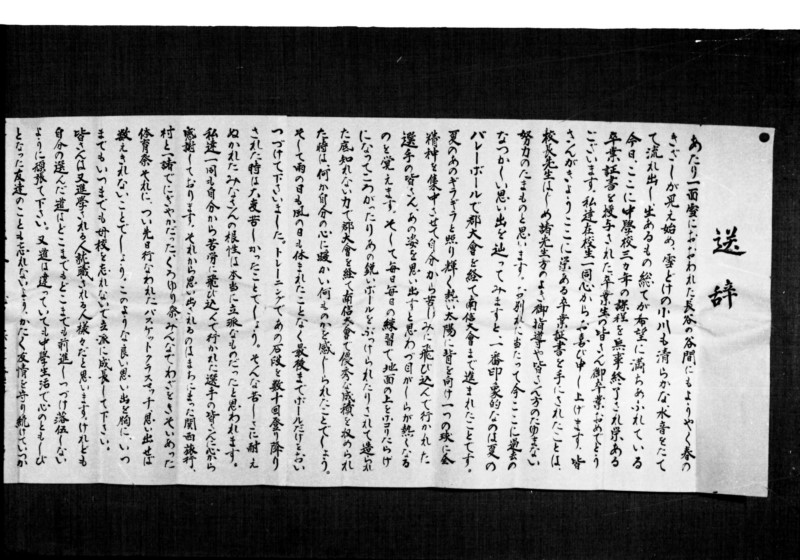 送辞
あたり一面雪におおわれた長谷の谷間にもようやく春の
きざしが見え始め、雪どけの小川も清らかな水音をたて
て流れ出し生あるもの総てが希望に満ちあふれている
今日、ここに中學校三カ年の課程を無事終了され栄ある
卒業証書を授与された卒業生の皆さん御卒業おめでとう
ございます。私達在校生一同心からお喜び申し上げます。皆
さんがきょうここに栄ある卒業証書を手にされたことは、
校長先生はじめ諸先生方のよき御指導や皆さん方のたゆまない
努力のたまものと思います。お別れに当たって今ここに過去の
なつかしい思い出を辿ってみますと、一番印象的なのは夏の
バレーボールで郡大會を経て南信大會まで進まれたことです。
夏のあのギラギラと照り輝く熱い太陽に背を向け一つの球に全
精神を集中させて自分から苦しみに飛び込んで行かれた
選手の皆さん、あの姿を思い出すと思わづ目がしらが熱くなる
のを覚えます。そして毎日毎日の練習で地面の上をホコリだらけ
になってころがったりあの鋭いボールをぶっけられたりされて造られ
た底知れない力で郡大會を経て南信大會で優秀な成績を収められ
た時は何か自分の心に暖かい何ものかを感じられたことでしょう。
そして雨の日も風の日も休まれたことなく最後までボールだけをおい
つづけて下さいました。トレーニングであの石段を数十回登り降り
された時は大変苦しかったことでしょう。そんな苦しさに耐え
ぬかれたみなさんの根性は本当に立派なものだったと思われます。
私達一同も自分から苦労に飛び込んで行かれた選手の皆さんに心から
感謝しております。それから思い出されるのはまちにまった関西旅行、
村と一諸でにぎやかだったくろゆり祭みんなでわざときそいあった
体育祭それに、つい先日行なわれたバスケットクラスマッチ思い出せば
数えきれないことでしょう。このような良い思い出を胸に、いつ
までもいつまでも母校を忘れないで立派に成長して下さい。
皆さんは又進學される人就職される人様々だと思いますけれども
自分の選んだ道はどこまでもどこまでも前進しつづけ落伍しない
ように頑張って下さい。又道は違っていても中學生活で心のともしび
となった友達のことも忘れないよう、かたく友情を守り続けていつか